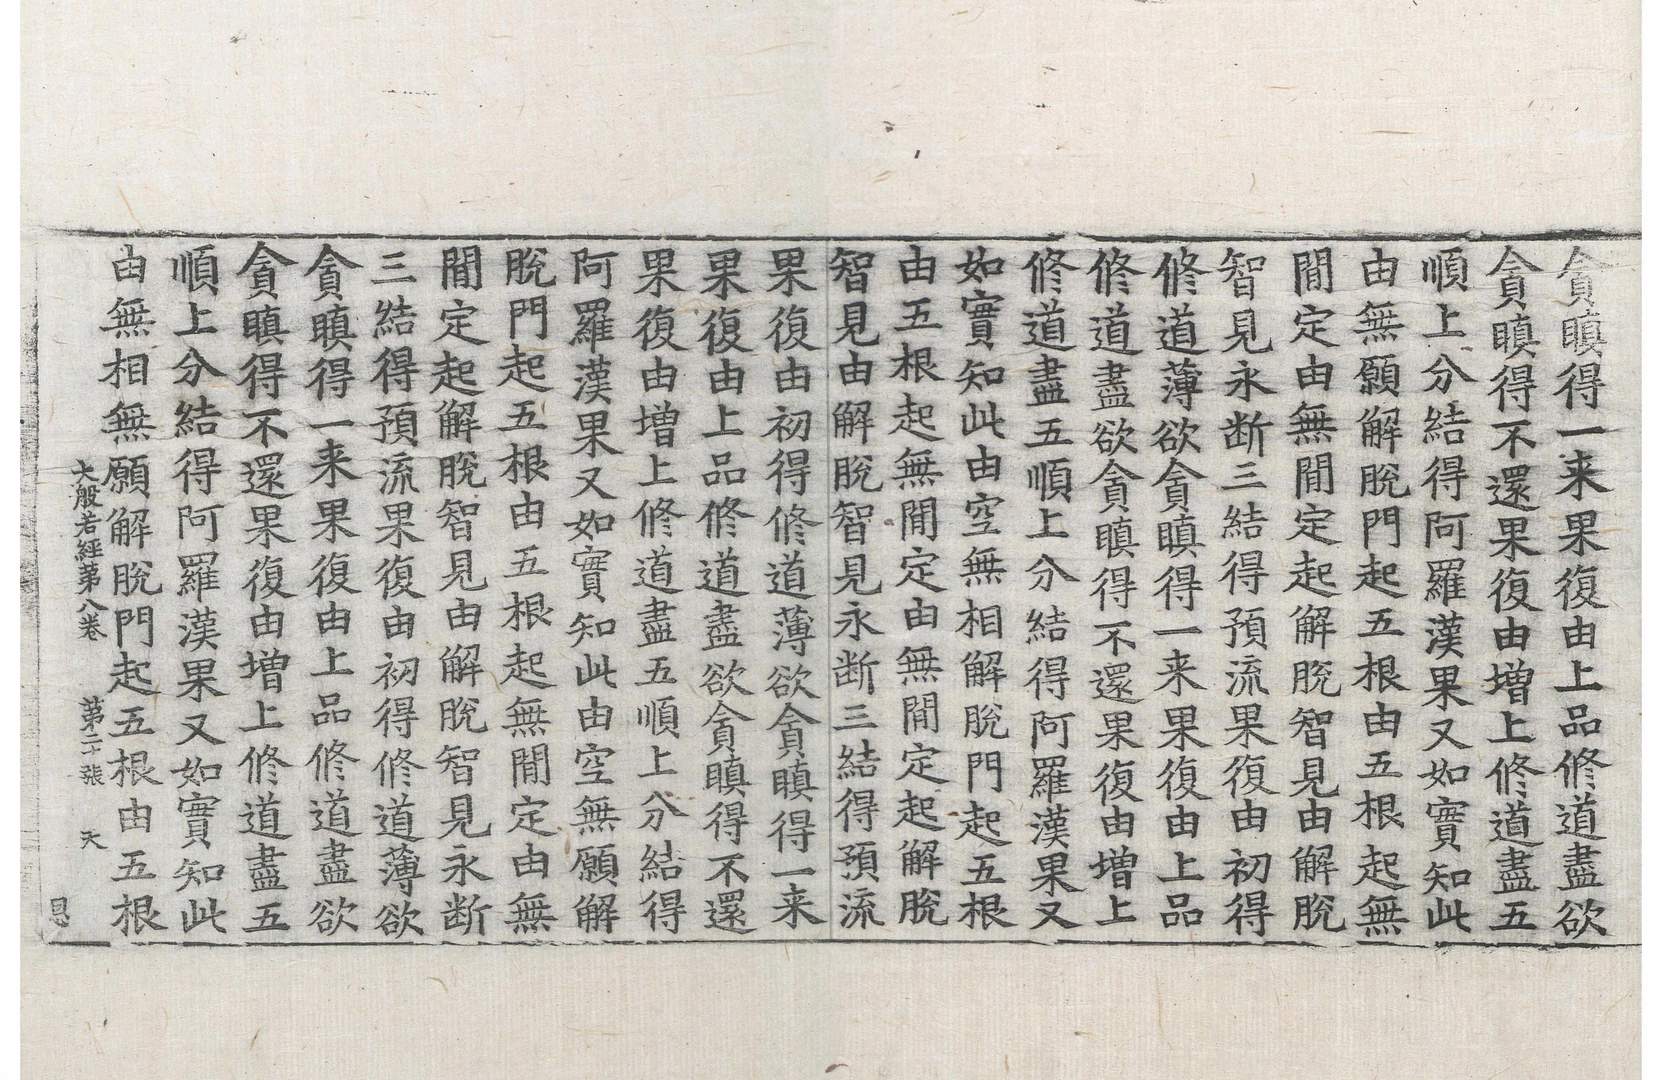 貪瞋得一来果復由上品修道盡欲
貪瞋得不還果復由增上修道盡五
順上分結得阿羅漢果又如實知此
由無願解脫門起五根由五根起無
閒定由無閒定起解脫智見由解脫
智見永断三結得預流果復由初得
修道薄欲貪瞋得一来果復由上品
修道盡欲貪瞋得不還果復由增上
修道盡五順上分結得阿羅漢果又
如實知此由空無相解脫門起五根
由五根起無閒定由無閒定起解脫
智見由解脫智見永断三結得預流
果復由初得修道薄欲貪瞋得一来
果復由上品修道盡欲貪瞋得不還
果復由增上修道盡五順上分結得
阿羅漢果又如實知此由空無願解
脫門起五根由五根起無閒定由無
閒定起解脫智見由解脫智見永断
三結得預流果復由初得修道薄欲
貪瞋得一来果復由上品修道盡欲
貪瞋得不還果復由增上修道盡五
順上分結得阿羅漢果又如實知此
由無相無願解脫門起五根由五根
大般若經第八卷 第二十張 天